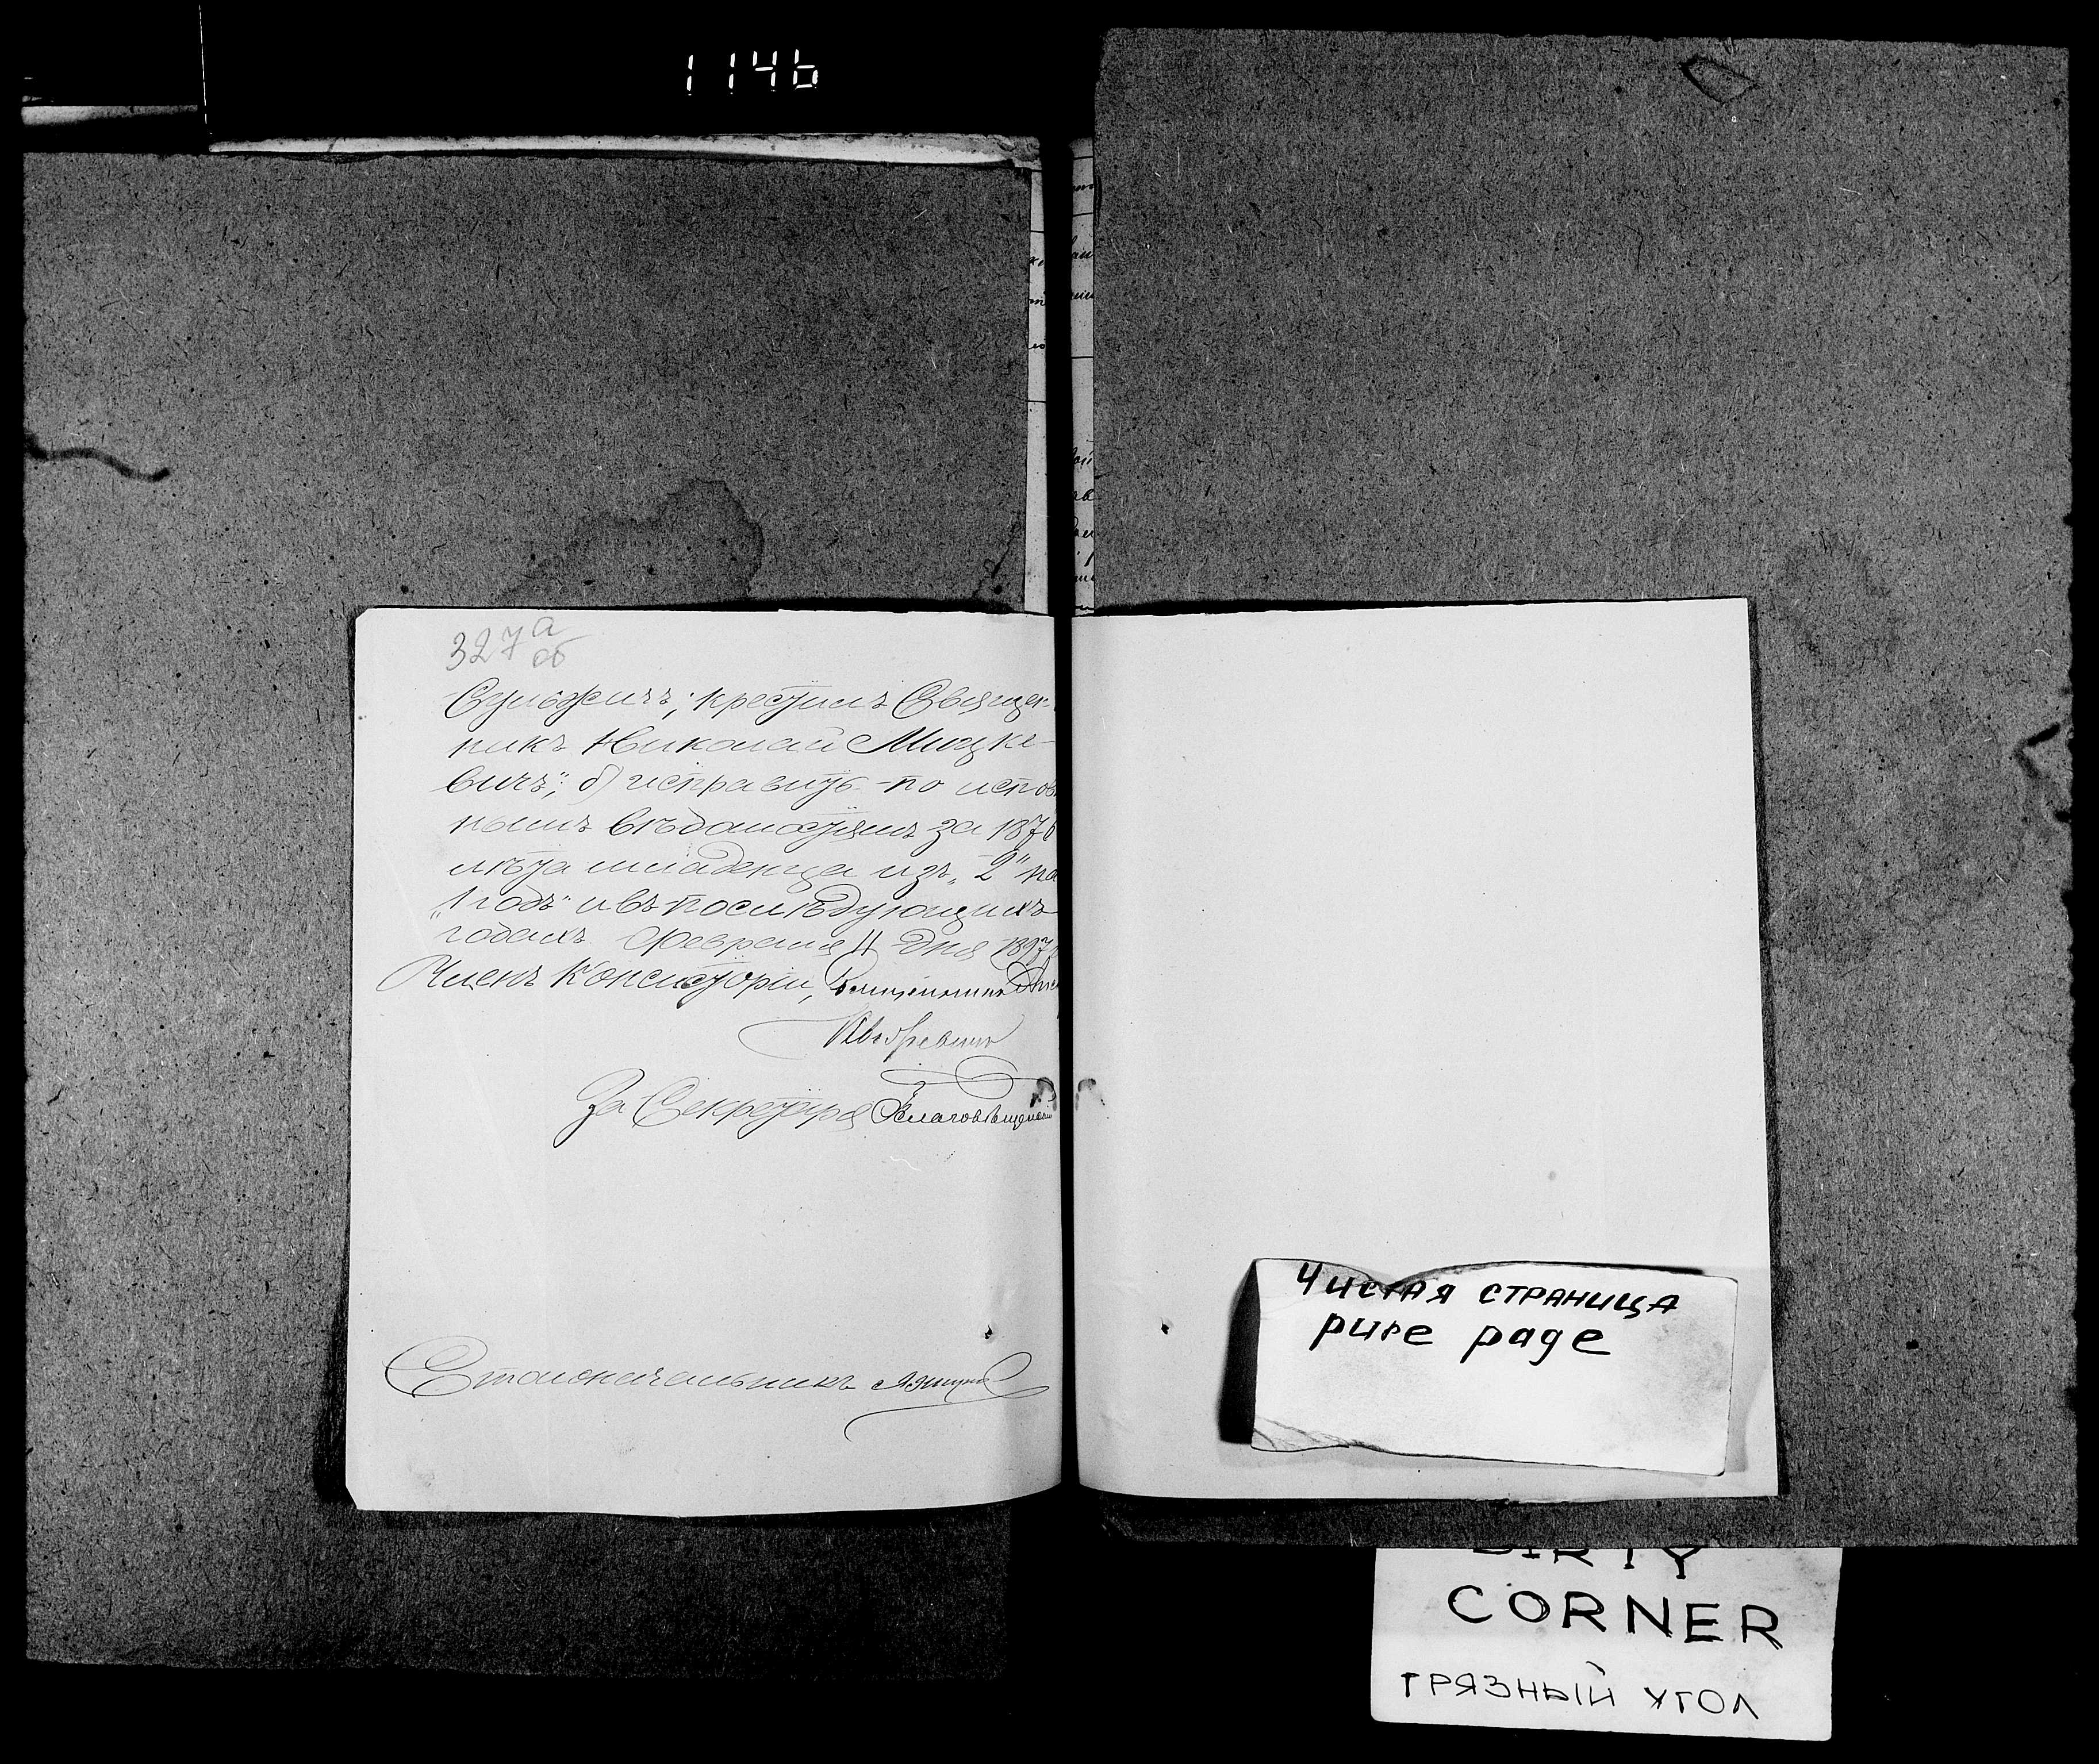 1146
327 а
об
Сульжичъ; крестилъ Священ-
никъ Николай Мицке-
вичъ"; б) исправить по испов
нымъ вѣдомостямъ за 1876
лѣта младенца изъ „2" на
„1 годъ" и въ послѣдующихъ
годахъ. Февраля 11 дня 1897
Членъ Консисторіи, Священникъ
За Секретаря Благовѣщенскій
Столоначальникъ
Чистая страница
pure page
DIRTY
CORNER
грязный угол